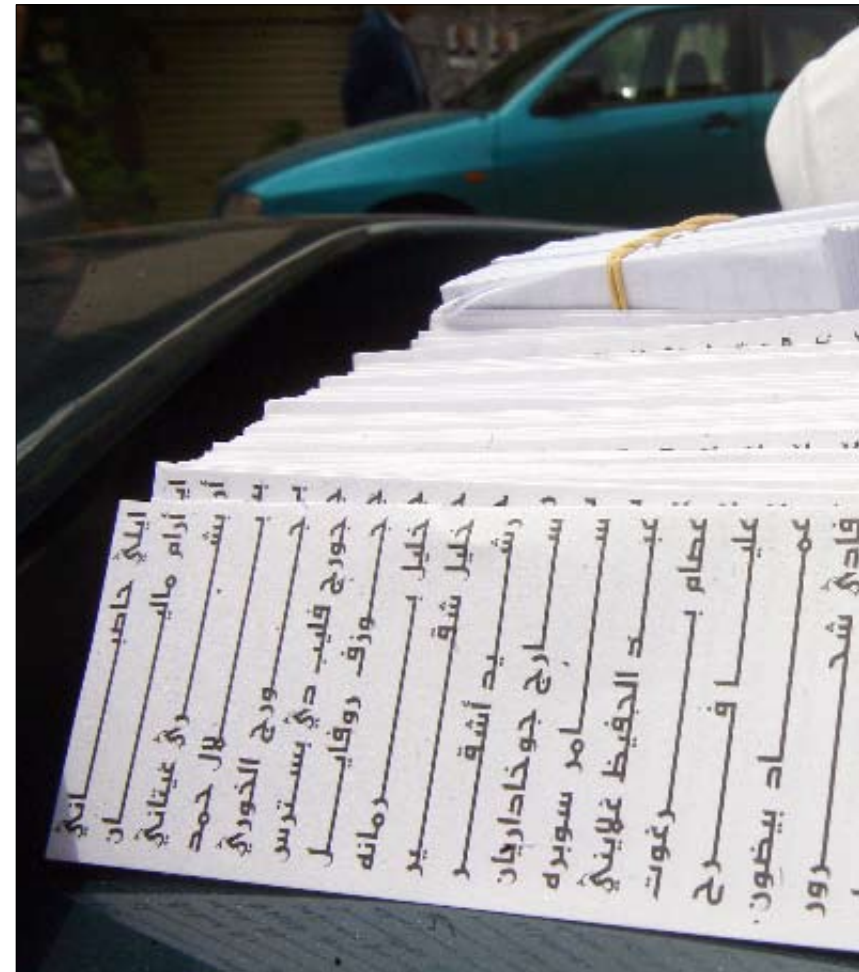 ايلي حاصباني
آرام ماليان
بشري عيتاني
بلال حمد
جورج الخوري
جورج فليب دي بسترس
جوزف روفايل
خليل برمانه
خليل شقير
رشيد أشقر
سارج جوخاداريان
سامر سوبره
عبد الحفيظ غلاييني
عصام برغوت
عليا فرج
عماد بيضون
فادي شحرور